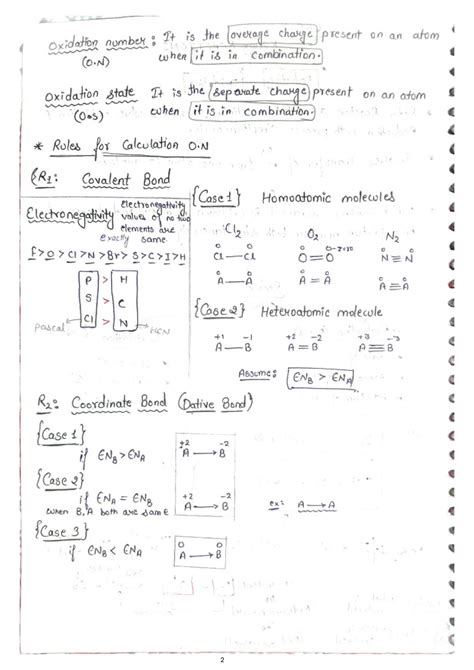 Oxidation number : It is the average charge present on an atom
(O.N) when it is in combination.
Oxidation state It is the separate charge present on an atom
(O.S) when it is in combination.
* Rules for Calculation O.N
R1: Covalent Bond
Electronegativity Electronegativity values of no two elements are exactly same
F>O>Cl>N>Br>S>C>I>H
P > H
S > C
Cl > N
Pascal HCN
{Case 1} Homoatomic molecules
Cl2 O2 N2
0 0 0 0 0
Cl—Cl O=O N≡N
0 0 0 0 0 0
A—A A=A A≡A
{Case 2} Heteroatomic molecule
+1 -1 +2 -2 +3 -3
A—B A=B A≡B
Assume: ENB > ENA
R2: Coordinate Bond (Dative Bond)
{Case 1}
if ENB > ENA
+2 -2
A → B
{Case 2}
if ENA = ENB
when B, A both are same
+2 -2
A → B
ex: A → A
{Case 3}
if ENB < ENA
0 0
A → B
2